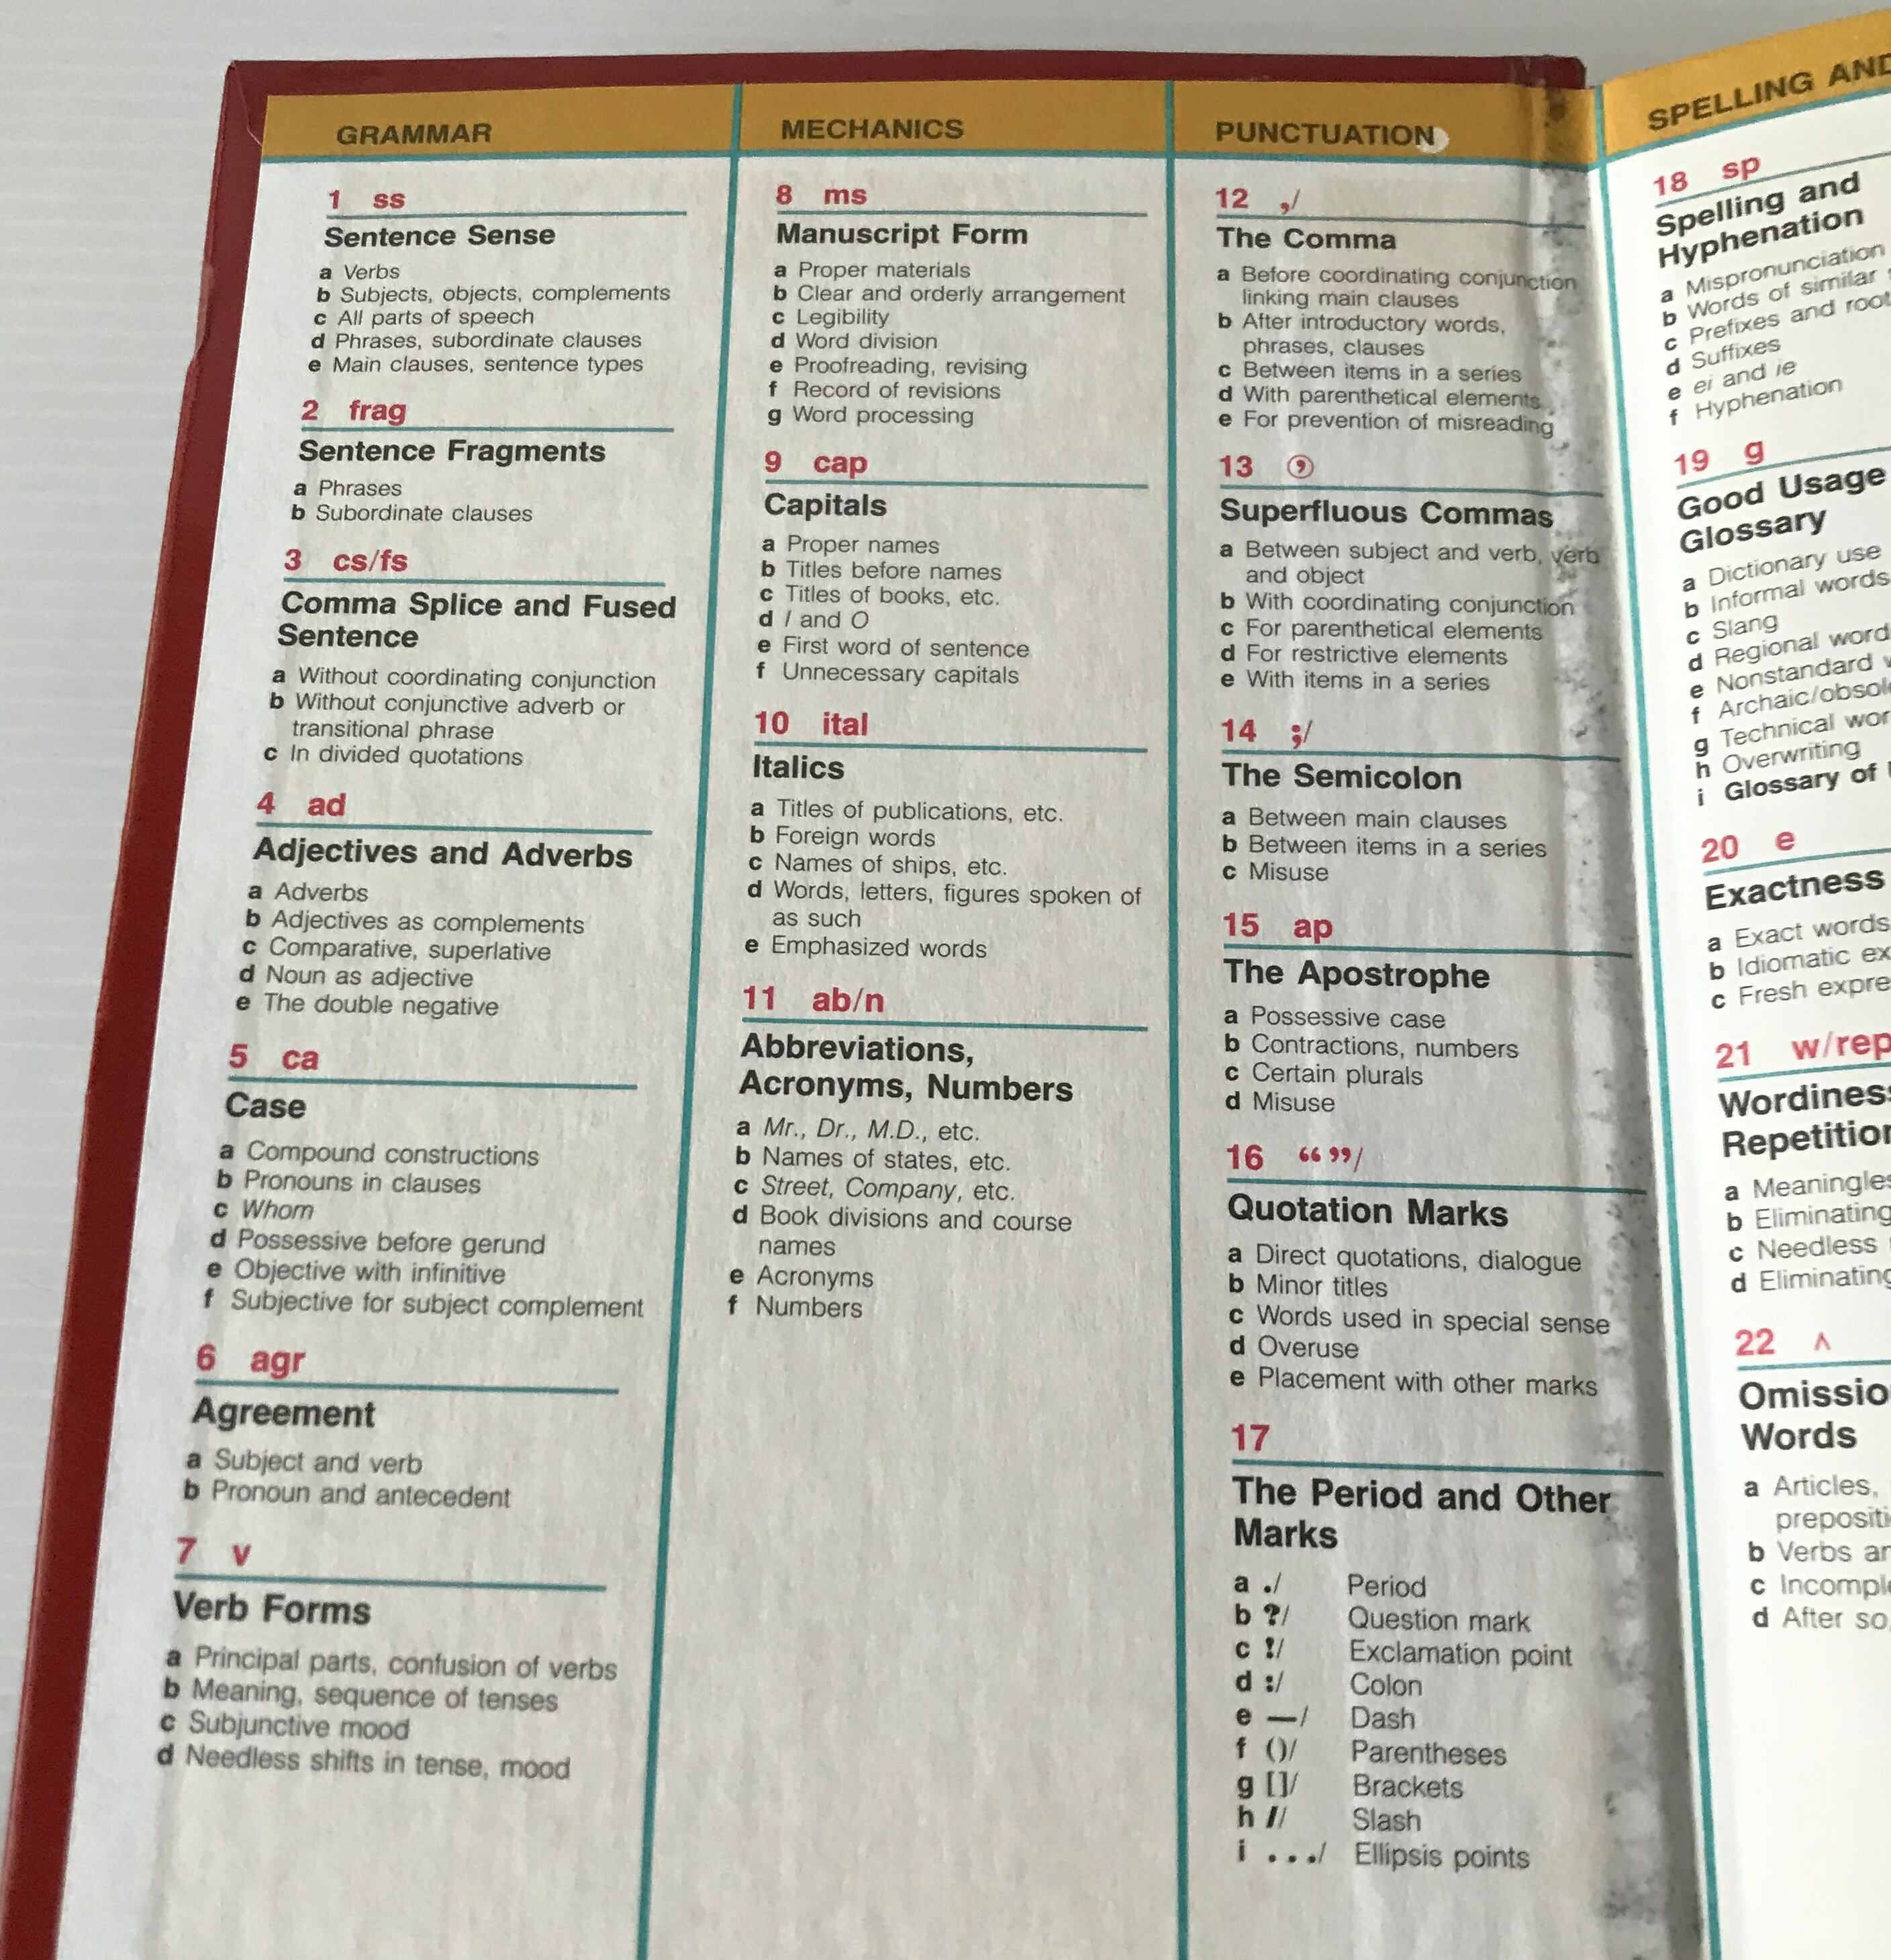 GRAMMAR
1 ss
Sentence Sense
a Verbs
b Subjects, objects, complements
c All parts of speech
d Phrases, subordinate clauses
e Main clauses, sentence types
2 frag
Sentence Fragments
a Phrases
b Subordinate clauses
3 cs/fs
Comma Splice and Fused
Sentence
a Without coordinating conjunction
b Without conjunctive adverb or
transitional phrase
c In divided quotations
4 ad
Adjectives and Adverbs
a Adverbs
b Adjectives as complements
c Comparative, superlative
d Noun as adjective
e The double negative
5 ca
Case
a Compound constructions
b Pronouns in clauses
c Whom
d Possessive before gerund
e Objective with infinitive
f Subjective for subject complement
6 agr
Agreement
a Subject and verb
b Pronoun and antecedent
7 v
Verb Forms
a Principal parts, confusion of verbs
b Meaning, sequence of tenses
c Subjunctive mood
d Needless shifts in tense, mood
MECHANICS
8 ms
Manuscript Form
a Proper materials
b Clear and orderly arrangement
c Legibility
d Word division
e Proofreading, revising
f Record of revisions
g Word processing
9 cap
Capitals
a Proper names
b Titles before names
c Titles of books, etc.
d I and O
e First word of sentence
f Unnecessary capitals
10 ital
Italics
a Titles of publications, etc.
b Foreign words
c Names of ships, etc.
d Words, letters, figures spoken of
as such
e Emphasized words
11 ab/n
Abbreviations,
Acronyms, Numbers
a Mr., Dr., M.D., etc.
b Names of states, etc.
c Street, Company, etc.
d Book divisions and course
names
e Acronyms
f Numbers
PUNCTUATION
12 ,/
The Comma
a Before coordinating conjunction
linking main clauses
b After introductory words,
phrases, clauses
c Between items in a series
d With parenthetical elements
e For prevention of misreading
13 ,
Superfluous Commas
a Between subject and verb, verb
and object
b With coordinating conjunction
c For parenthetical elements
d For restrictive elements
e With items in a series
14 ;/
The Semicolon
a Between main clauses
b Between items in a series
c Misuse
15 ap
The Apostrophe
a Possessive case
b Contractions, numbers
c Certain plurals
d Misuse
16 “ ”/
Quotation Marks
a Direct quotations, dialogue
b Minor titles
c Words used in special sense
d Overuse
e Placement with other marks
17
The Period and Other
Marks
a ./ Period
b ?/ Question mark
c !/ Exclamation point
d :/ Colon
e —/ Dash
f ()/ Parentheses
g []/ Brackets
h // Slash
i .../ Ellipsis points
SPELLING AND
18 sp
Spelling and
Hyphenation
a Mispronunciation
b Words of similar
c Prefixes and
d Suffixes
e ei and ie
f Hyphenation
19 g
Good Usage
Glossary
a Dictionary use
b Informal words
c Slang
d Regional
e Nonstandard
f
g Technical
h Overwriting
i Glossary of
20 e
Exactness
a Exact words
b Idiomatic
c Fresh
21 w/rep
a
b Eliminating
c Needless
d Eliminating
22 ^
Words
a Articles,
b Verbs
c
d After so